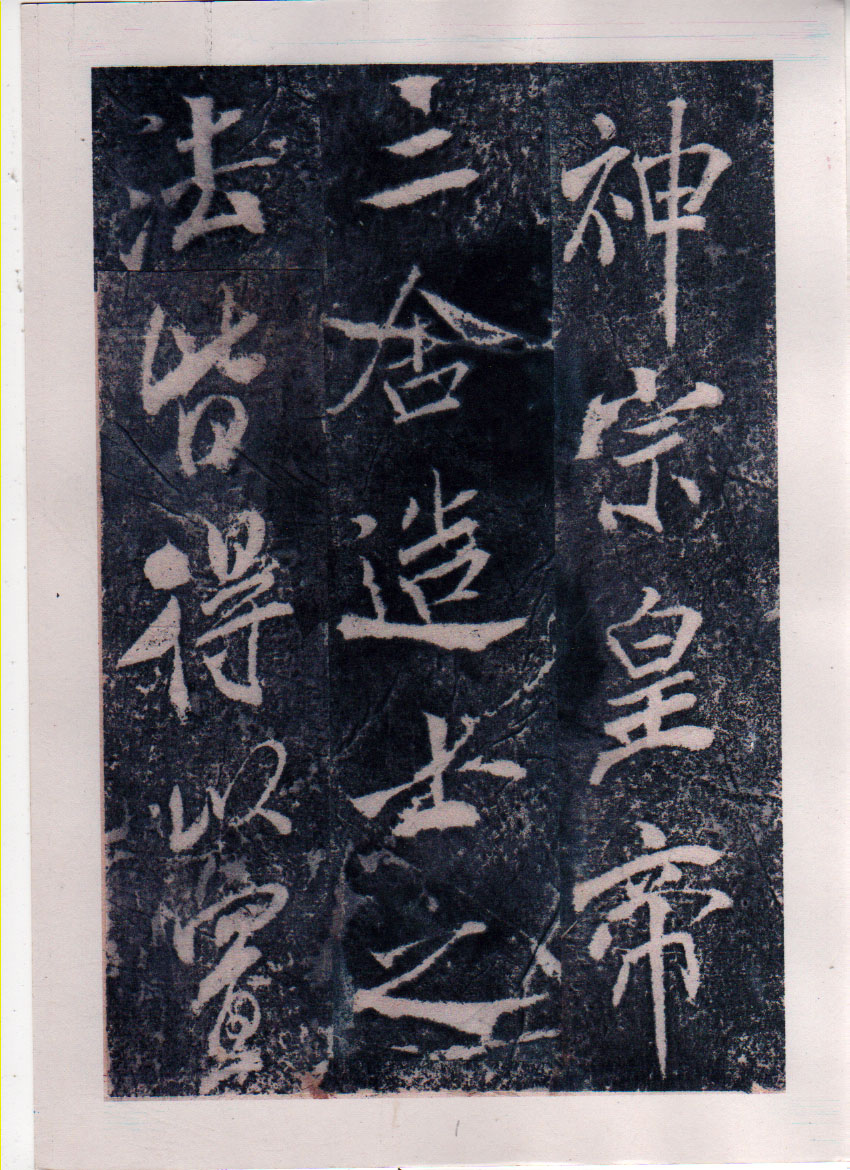 神宗皇帝
三舍造士之
法皆得以置